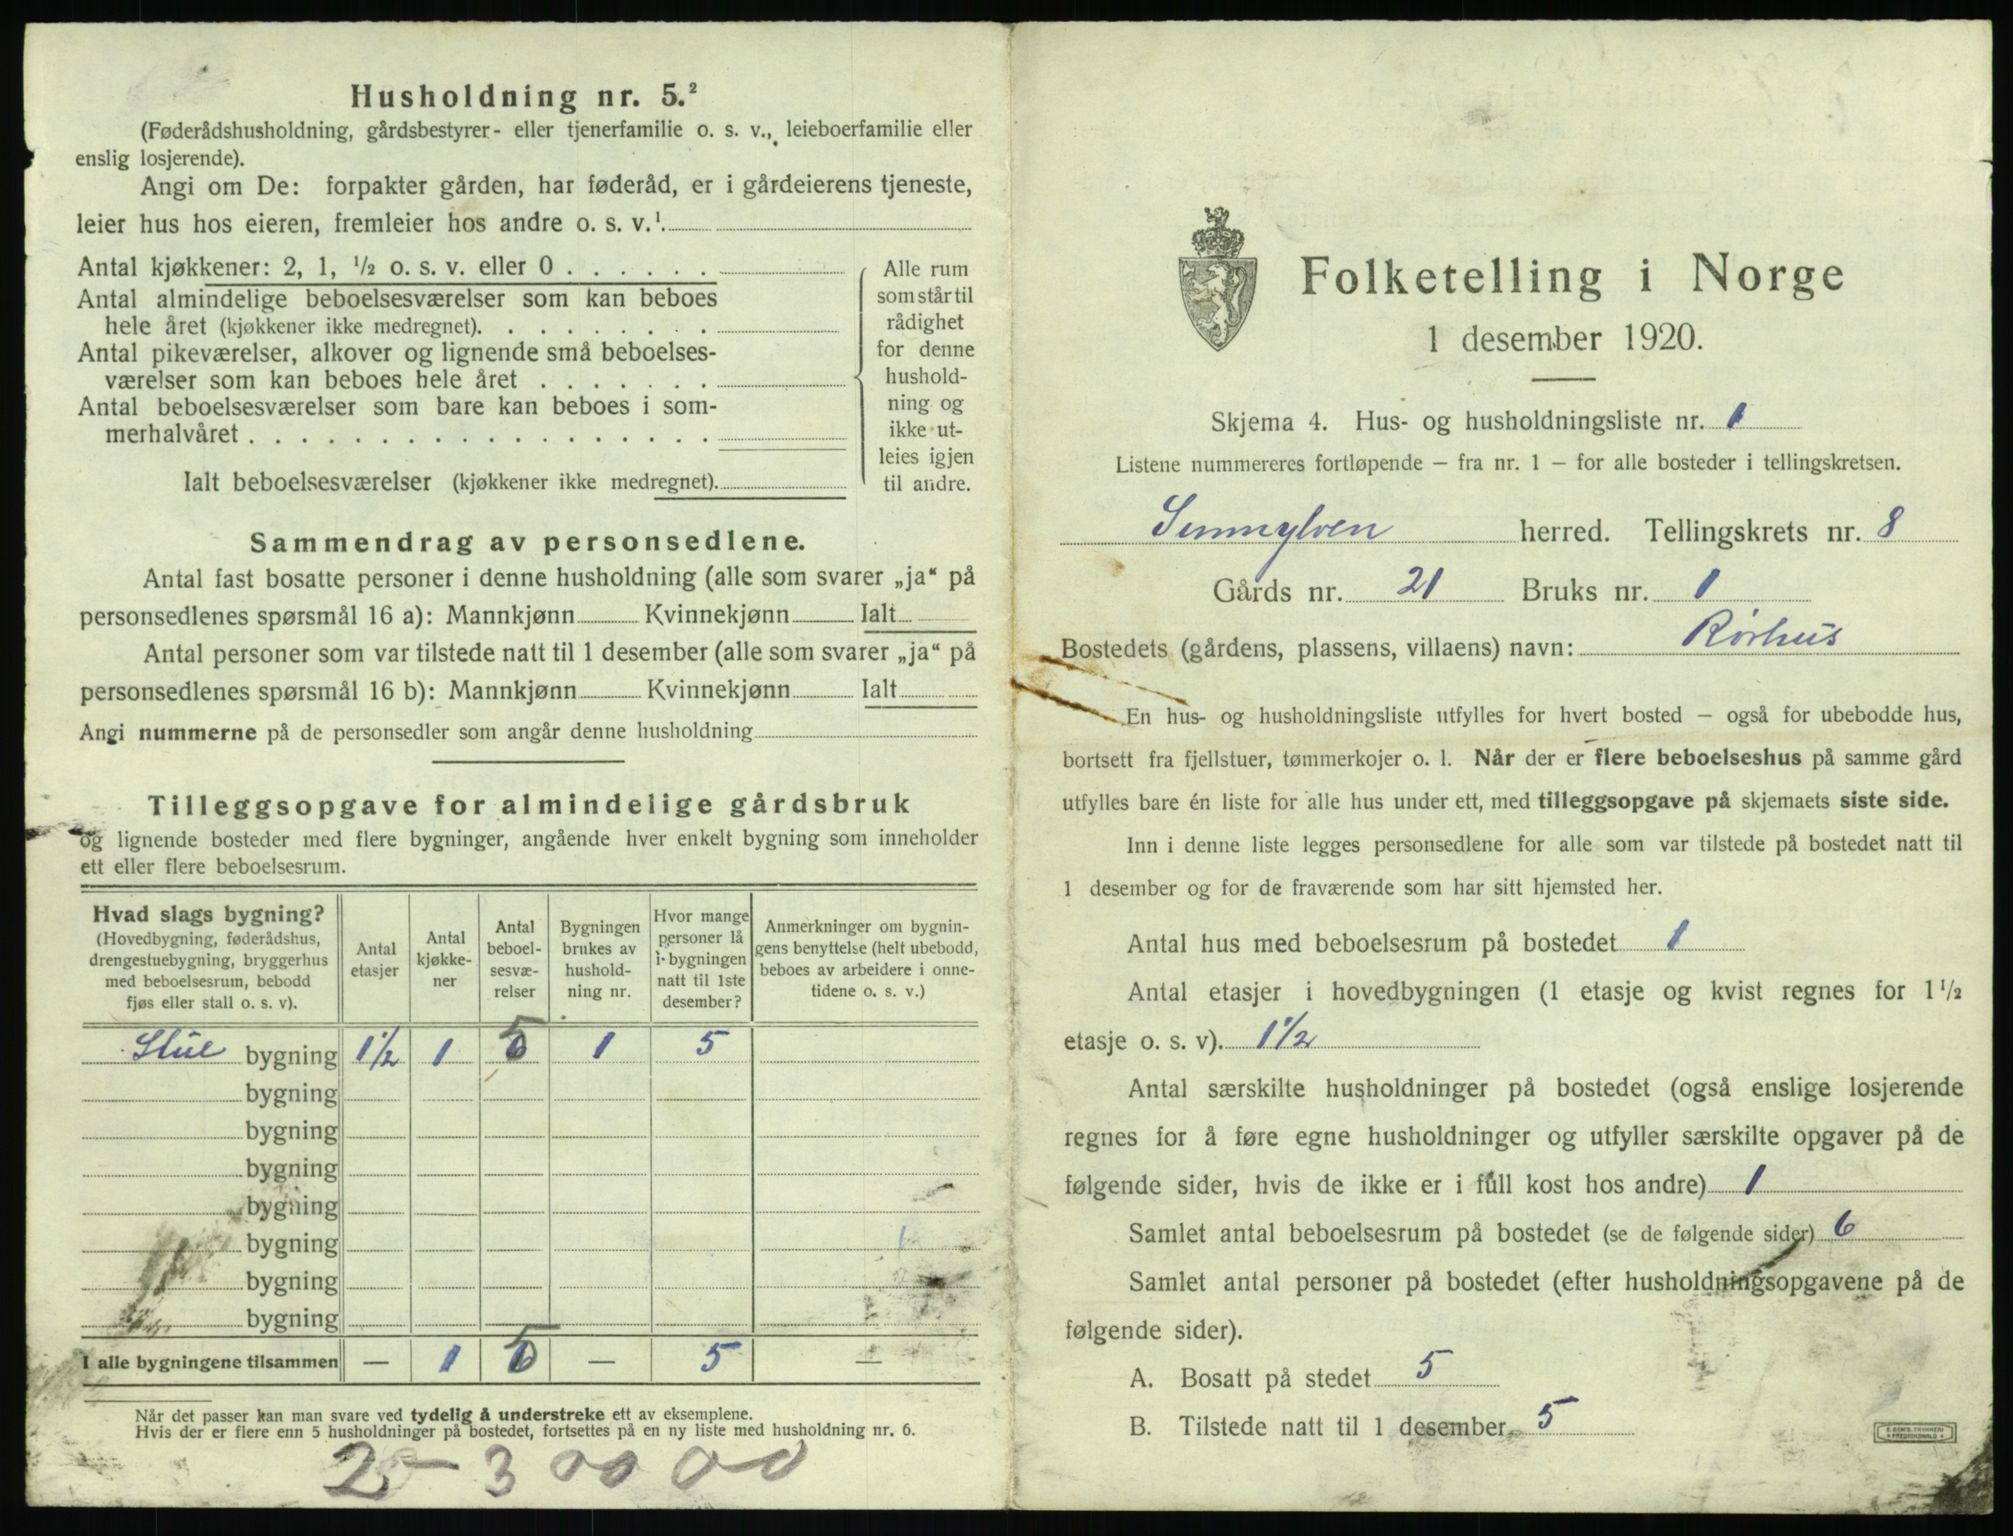 Husholdning nr. 5.²
(Føderådshusholdning, gårdsbestyrer- eller tjenerfamilie o. s. v., leieboerfamilie eller
enslig losjerende).
Angi om De: forpakter gården, har føderåd, er i gårdeierens tjeneste,
leier hus hos eieren, fremleier hos andre o. s. v.¹
Antal kjøkkener: 2, 1, ½ o. s. v. eller 0 . . . . . .
Antal almindelige beboelsesværelser som kan beboes
hele året (kjøkkener ikke medregnet). . . . . . . . .
Antal pikeværelser, alkover og lignende små beboelses-
værelser som kan beboes hele året . . . . . . .
Antal beboelsesværelser som bare kan beboes i som-
merhalvåret . . . . . . . . . . . . . . . . . .
Ialt beboelsesværelser (kjøkkener ikke medregnet).
Alle rum
som står til
rådighet
for denne
hushold-
ning og
ikke ut-
leies igjen
til andre.
Sammendrag av personsedlene.
Antal fast bosatte personer i denne husholdning (alle som svarer „ja“ på
personsedlenes spørsmål 16 a): Mannkjønn Kvinnekjønn Ialt
Antal personer som var tilstede natt til 1 desember (alle som svarer „ja“ på
personsedlenes spørsmål 16 b): Mannkjønn Kvinnekjønn Ialt
Angi nummerne på de personsedler som angår denne husholdning
Tilleggsopgave for almindelige gårdsbruk
og lignende bosteder med flere bygninger, angående hver enkelt bygning som inneholder
ett eller flere beboelsesrum.
Hvad slags bygning?
(Hovedbygning, føderådshus,
drengestuebygning, bryggerhus
med beboelsesrum, bebodd
fjøs eller stall o. s. v).
Antal
etasjer
Antal
kjøkke-
ner
Antal
beboel-
sesvæ-
relser
Bygningen
brukes av
hushold-
ning nr.
Hvor mange
personer lå
i bygningen
natt til 1ste
desember?
Anmerkninger om bygnin-
gens benyttelse (helt ubebodd,
beboes av arbeidere i onne-
tidene o. s. v.)
Stue bygning 1½ 1 5 1 5
bygning
bygning
bygning
bygning
bygning
bygning
bygning
I alle bygningene tilsammen — 1 5 — 5 —
Når det passer kan man svare ved tydelig å understreke ett av eksemplene.
Hvis der er flere enn 5 husholdninger på bostedet, fortsettes på en ny liste med husholdning nr. 6.
Folketelling i Norge
1 desember 1920.
Skjema 4. Hus- og husholdningsliste nr. 1
Listene nummereres fortløpende – fra nr. 1 – for alle bosteder i tellingskretsen.
Sunnylven herred. Tellingskrets nr. 8
Gårds nr. 21 Bruks nr. 1
Bostedets (gårdens, plassens, villaens) navn: Rørhus
En hus- og husholdningsliste utfylles for hvert bosted – også for ubebodde hus,
bortsett fra fjellstuer, tømmerkojer o. l. Når der er flere beboelseshus på samme gård
utfylles bare én liste for alle hus under ett, med tilleggsopgave på skjemaets siste side.
Inn i denne liste legges personsedlene for alle som var tilstede på bostedet natt til
1 desember og for de fraværende som har sitt hjemsted her.
Antal hus med beboelsesrum på bostedet 1
Antal etasjer i hovedbygningen (1 etasje og kvist regnes for 1½
etasje o. s. v). 1½
Antal særskilte husholdninger på bostedet (også enslige losjerende
regnes for å føre egne husholdninger og utfyller særskilte opgaver på de
følgende sider, hvis de ikke er i full kost hos andre) 1
Samlet antal beboelsesrum på bostedet (se de følgende sider) 6
Samlet antal personer på bostedet (efter husholdningsopgavene på de
følgende sider).
A. Bosatt på stedet 5
B. Tilstede natt til 1 desember 5